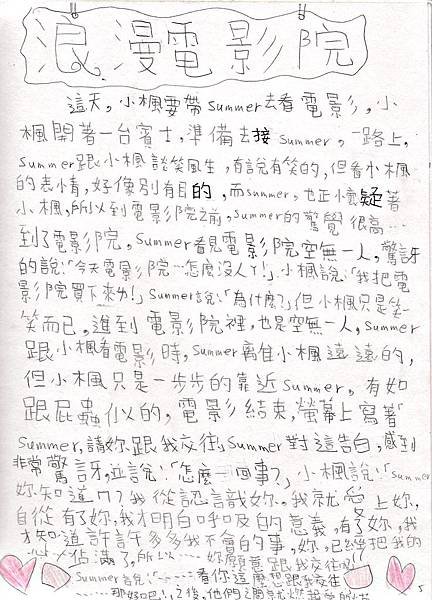 浪漫電影院
這天,小楓要帶summer去看電影,小
楓開著一台賓士,準備去接summer。一路上,
summer跟小楓談笑風生,有說有笑的,但看小楓
的表情,好像別有目的,而summer,也正懷疑著
小楓,所以到電影院之前,summer的驚覺很高…
到了電影院,summer看見電影院空無一人,驚訝
的說:「今天電影院…怎麼沒人ㄚ!」小楓說:「我把電
影院買下來ㄌ!」summer說:「為什麼?」但小楓只是笑
笑而已,進到電影院裡,也是空無一人,summer
跟小楓看電影時,summer離佳小楓遠遠的,
但小楓只是一步步的靠近summer。有如
跟屁蟲似的,電影結束,螢幕上寫著「
summer,請妳跟我交往」summer對這告白,感到
非常驚訝,並說:「怎麼一回事?」小楓說:「summer
妳知道ㄇ?我從認識妳。我就愛上妳,
自從有了妳,我才明白呼及的意義,有了妳,我
才知道許許多多我不會的事,妳,已經把我的
心佔滿了,所以……妳願意跟我交往嗎
summer說:「……看你這麼想跟我交往
……那好吧!」之後,他們之間就燃起愛的
5